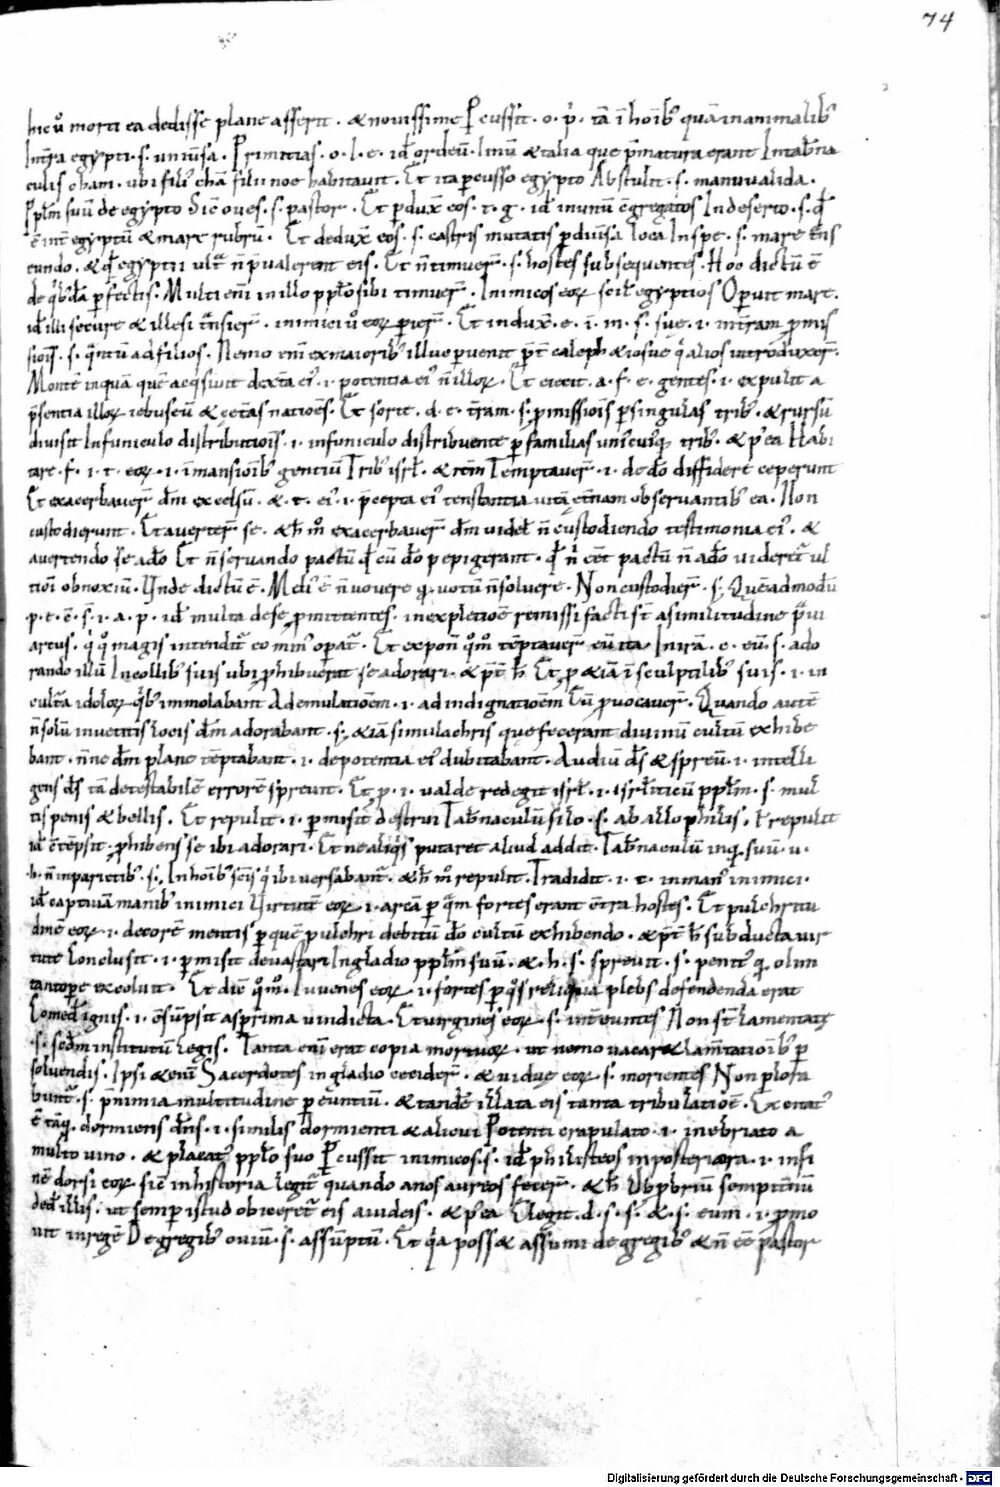 74
hic u̅ morti ea dedisse plane asserit . & novissime P̅cussit . o . p̅ . ta̅ i̅ hoi̅b; qua̅ in animalib;
Int̅ra egypti . s . univ̅sa . Primitias . o . l . e . id̅ ordeu̅ . linu̅ & talia que p̅matura erant In tab̅na
culis cham . ubi filii cha̅ filii noe habitavit . Et ita percusso egypto Abstulit . s . manu valida .
Pp̅lm suu̅ de egypto Sic̅ oves . s . pastor . Et p̅dux̅ eos . t . g . id̅ in unu̅ c̅gregatos In deserto . s . q̅d
e̅ int̅ egyptu̅ & mare rubru̅ . Et dedux̅ eos . s . castris mutatis p̅ div̅sa loca In spe . s . mare t̅ns
eundo . & q̅d egyptii ult̅ n̅ p̅valerent eis . Et n̅ timuer̅ . s . hostes subsequentes . Hoc dictu̅ e̅
de q̅b;da̅ p̅fectis . Multi eni̅ in illo pp̅lo sibi timuer̅ . Inimicos eoꝝ scil̅ egyptios Operuit mare .
id̅ illi secure & illesi t̅nsier̅ . inimici u̅ eoꝝ p̅ier̅ . Et indux̅ . e . i̅ . m . s . sue . i . in t̅ram p̅mis
sio̅is . s . q̅ntu̅ ad filios . Nemo eni̅ ex maiorib; illuc pervenit p̅t̅ caleph & iosue q̅ alios introduxer̅ .
Monte̅ inqua̅ que̅ acq̅sivit dext̅a ei; . i . potentia ei; n̅ illoꝝ . Et eiecit . a . f . e . gentes . i . expulit a
p̅sentia illoꝝ iebuseu̅ & cet̅as natio̅es . Et sorte . d . e . t̅ram . s . p̅missio̅is p̅ singulas trib; . & rursu̅
divisit In funiculo distributio̅is . i . in funiculo distribuente p̅ familias unicuiq; trib; . & p̅ ea Habi
tare . f . i . t . eoꝝ . i . i̅ mansio̅ib; gentiu̅ Trib; isrl̅ . & tam̅ Temptaver̅ . i . de d̅o diffidere ceperunt
Et exacerbaver̅ d̅m excelsu̅ . & . t . ei; . i . p̅cepta ei; testantia vita̅ et̅nam observantib; ea . Non
custodierunt . Et averter̅ se . & h̅ m̅ exacerbaver̅ d̅m videl̅ n̅ custodiendo testimonia ei; . &
avertendo se a d̅o Et n̅ servando pactu̅ q̅d cu̅ d̅o pepigerant . q̅d n̅ e̅et pactu̅ n̅ a d̅o videret̅ ul
tio̅i obnoxiu̅ . Unde dictu̅ e̅ . Meli; e̅ n̅ vovere q̅ . votu̅ n̅ solvere . Non custodier̅ . s; Que̅admodu̅
. p . e . c̅ . s . i . a . p . id̅ multa de se p̅mittentes . in expletio̅e remissi facti s̅t a similitudine p̅vi
arcus . q̅ q̅o magis intendit̅ eo min; opat̅ . Et expon̅ q̅o m̅ te̅ptaver̅ eu̅ ita In ira̅ . c . eu̅ . s . ado
rando illu̅ In collib; suis ubi p̅hibuerat se adorari . & p̅t̅ h̅ Et p̅ & ia̅ i̅ sculptilib; suis . i . in
cult̅a idoloꝝ q̅b; immolabant Ad emulatio̅em . i . ad indignatio̅em Eu̅ p̅vocaver̅ . Quando aute̅
n̅ solu̅ in vetitis locis d̅m adorabant . s; & ia̅ simulachris que fecerant divinu̅ cultu̅ exhibe
bant . n̅ne d̅m plane te̅ptabant . i . de potentia ei; dubitabant . Audiu̅ d̅s & spreu̅ . i . intelli
gens d̅s ta̅ detestabile̅ errore̅ sprevit . Et . p . i . valde redegit isrl̅ . i . isrl̅iticu̅ pp̅lm . s . mul
tis penis & bellis . Et repulit . i . p̅misit destrui Tab̅naculu̅ silo . s . ab allophilis . l̅ repulit
id̅ c̅te̅psit . p̅hibens se ibi adorari . Et ne aliq̅s putaret aliud addit . Tab̅naculu̅ inq̅ . suu̅ . u .
. h . n̅ in parietib; . s; . In hoi̅b; sc̅is q̅ ibi versabant̅ . & h̅ m̅ repulit . Tradidit . i . t . in man; inimici .
id̅ captiva̅ manib; inimici Virtute̅ eoꝝ . i . arca̅ p̅ q̅m fortes erant c̅tra hostes . Et pulchritu
dine̅ eoꝝ . i . decore̅ mentis p̅ que̅ pulchri debitu̅ d̅o cultu̅ exhibendo . & p̅t̅ h̅ subducta vir
tute Conclusit . i . p̅misit devastari In gladio pp̅lm suu̅ . & . h . s . sprevit . s . penit; q̅ olim
tantop̅e excoluit . Et dic̅ q̅o m̅ . Iuvenes eoꝝ . i . fortes p̅ q̅s reliquia plebs defendenda erat
Comed̅ ignis . i . c̅su̅psit asp̅rima vindicta . Et virgines eoꝝ . s . int̅euntes Non s̅t lamentate
. s . sc̅dm institutu̅ legis . Tanta eni̅ erat copia mortuoꝝ . ut nemo vacar& lam̅tatio̅ib; p̅
solvendis . Ipsi & eni̅ Sacerdotes in gladio cecider̅ . & vidue eoꝝ . s . morientes Non plora
bunt̅ . s . p̅ nimia multitudine p̅euntiu̅ . & tande̅ illata eis tanta tribulatio̅e . Excitat;
e̅ ta̅q̅ . dormiens d̅ns . i . similis dormienti & alicui Potenti crapulato . i . inebriato a
multo vino . & placat; pp̅lo suo P̅cussit inimicos . s . id̅ philisteos in posteriora . i . in fi
ne̅ dorsi eoꝝ . sic̅ in historia legit̅ quando anos aureos fecer̅ . & h̅ Obp̅briu̅ sempit̅nu̅
ded̅ illis . ut semp̅ istud obiceret̅ eis a iudeis . & p̅ ea Elegit . d . s . s . & . s . eum . i . p̅mo
vit in rege̅ De gregib; oviu̅ . s . assu̅ptu̅ . Et q̅a poss& assumi de gregib; & n̅ e̅e pastor
Digitalisierung gefördert durch die Deutsche Forschungsgemeinschaft - DFG